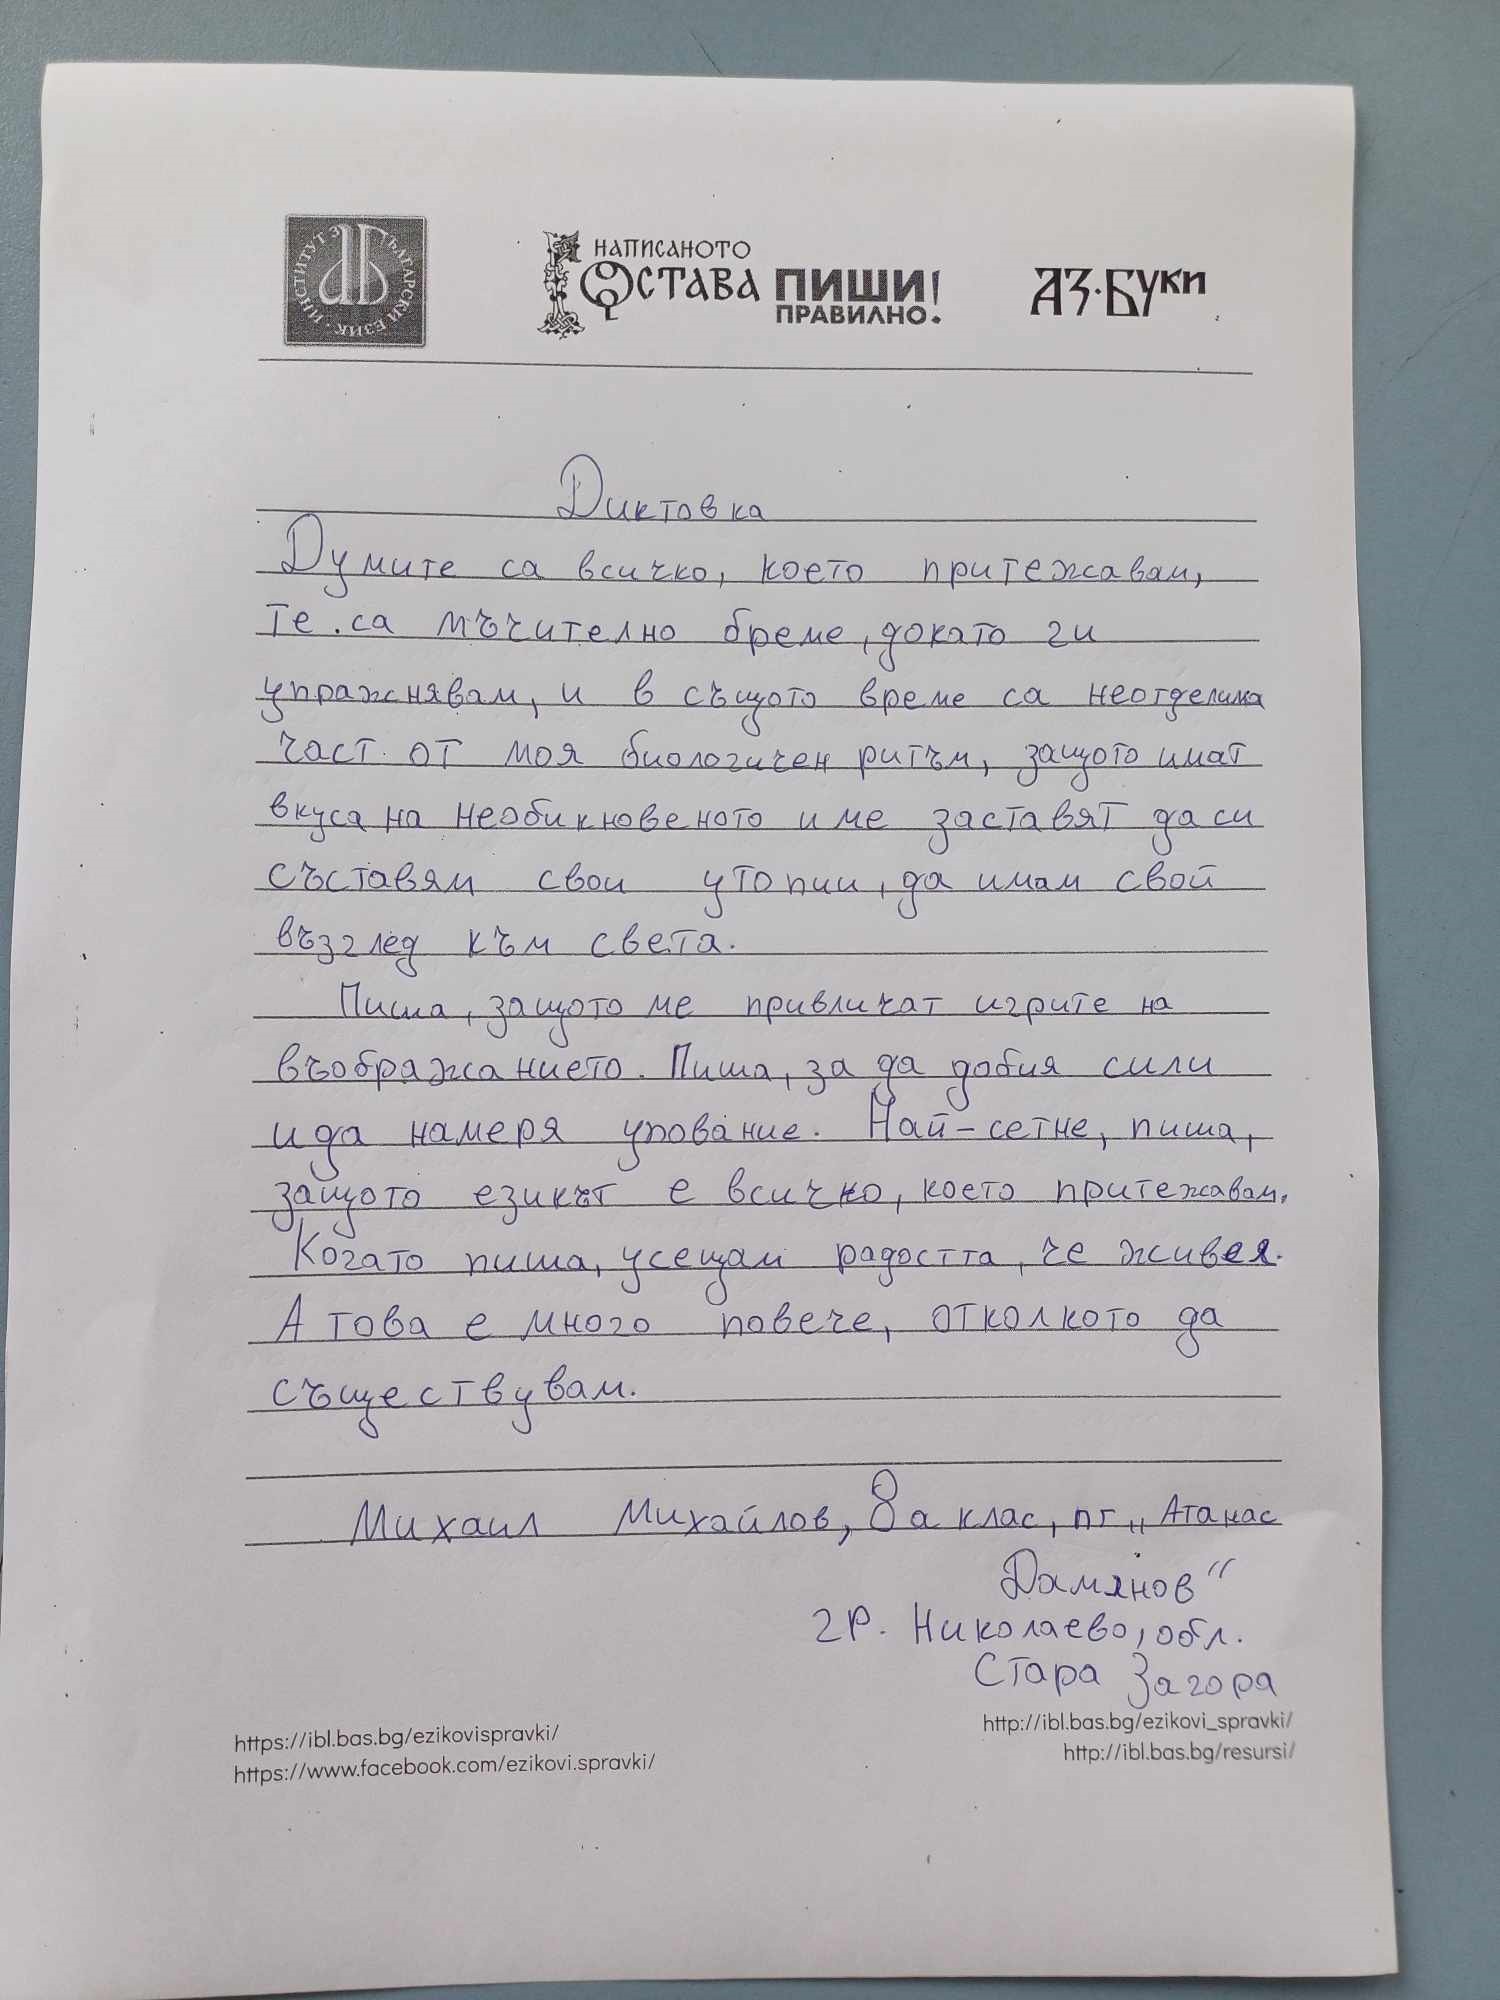 ИНСТИТУТ ЗА БЪЛГАРСКИ ЕЗИК
НАПИСАНОТО
ОСТАВА ПИШИ
ПРАВИЛНО!
АЗ·БУКИ
Диктовка
Думите са всичко, което притежавам,
те са мъчително бреме, докато ги
упражнявам, и в същото време са неотделима
част от моя биологичен ритъм, защото имат
вкуса на необикновеното и ме заставят да си
съставям свои утопии, да имам свой
възглед към света.
Пиша, защото ме привличат игрите на
въображанието. Пиша, за да добия сили
и да намеря упование. Най-сетне, пиша,
защото езикът е всичко, което притежавам.
Когато пиша, усещам радостта, че живея.
А това е много повече, отколкото да
съществувам.
Михаил Михайлов, 8а клас, ПГ „Атанас
Дамянов"
гр. Николаево, обл.
Стара Загора
https://ibl.bas.bg/ezikovispravki/
http://ibl.bas.bg/ezikovi_spravki/
https://www.facebook.com/ezikovi.spravki/
http://ibl.bas.bg/resursi/